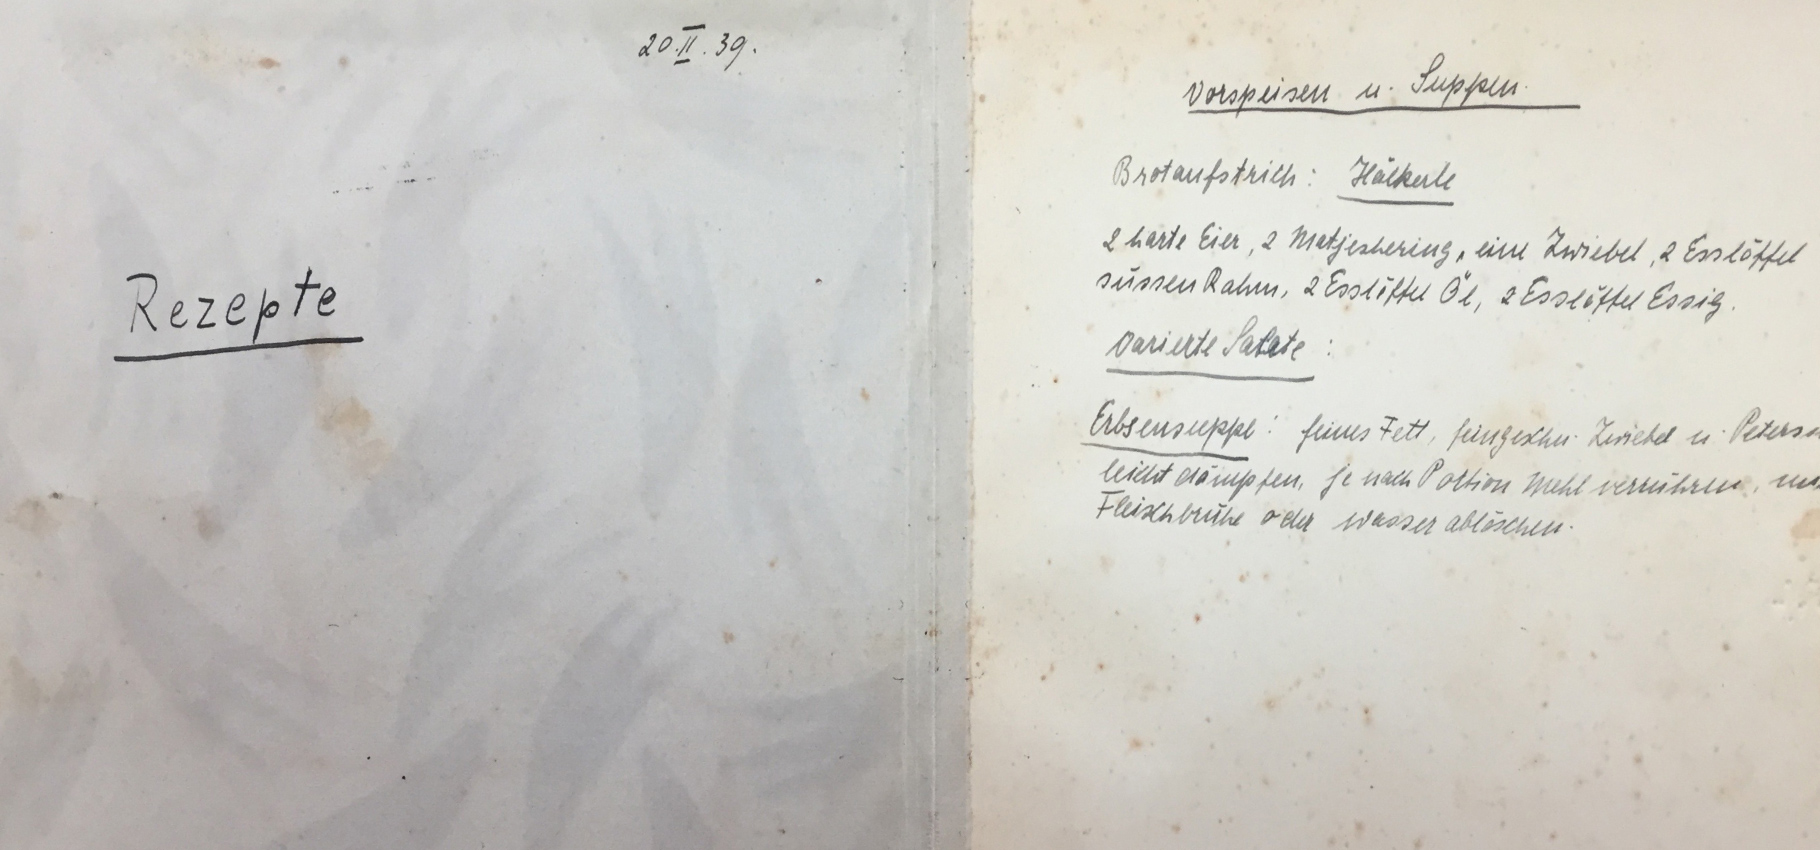 20.II.39.
Rezepte
Vorspeisen u. Suppen.
Brotaufstrich: Häckerle
2 harte Eier, 2 Matjeshering, eine Zwiebel, 2 Esslöffel
süssen Rahm, 2 Esslöffel Öl, 2 Esslöffel Essig.
Varierte Salate:
Erbsensuppe: feines Fett, feingeschn. Zwiebel u.
leicht dämpfen, je nach Portion Mehl verrühren,
Fleischbrühe oder Wasser ablöschen.